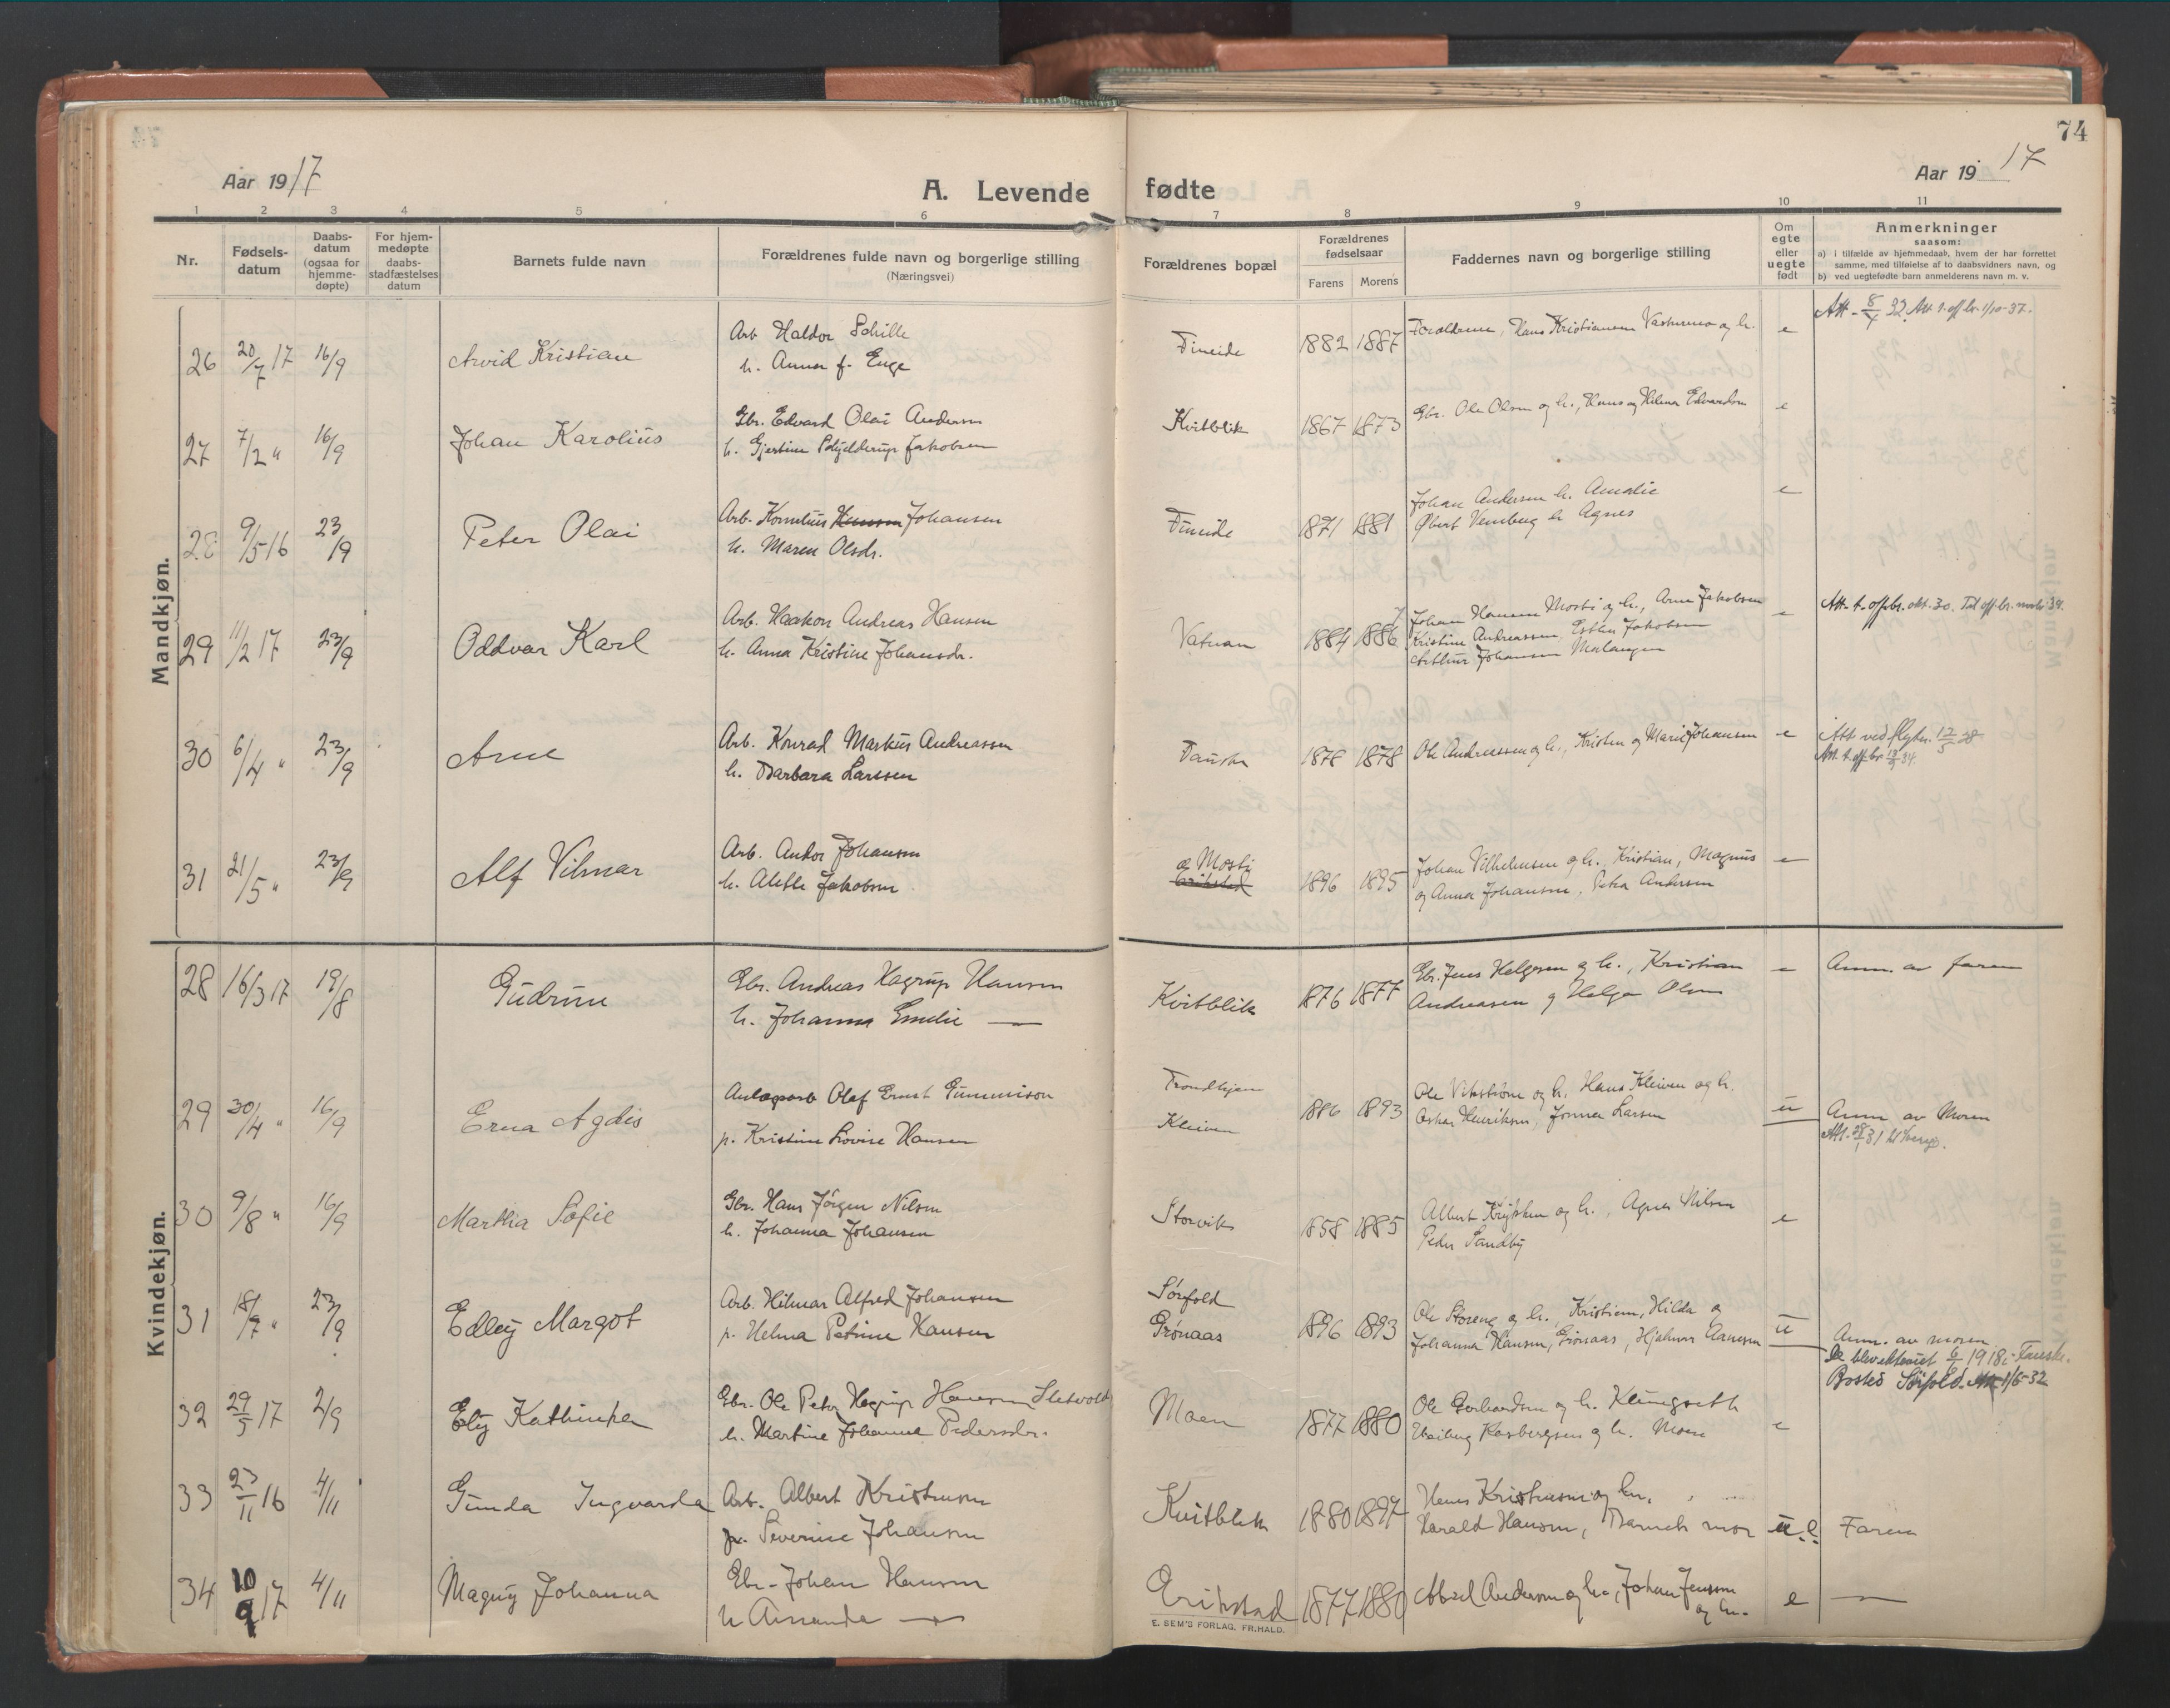 74
Aar 1917
A. Levende fødte
Aar 1917
1 2 3 4 5 6 7 8 9 10 11
Nr.
Fødsels-datum
Daabs-datum (ogsaa for hjemme-døpte)
For hjem-medøpte daabs-stadfæstelses datum
Barnets fulde navn
Forældrenes fulde navn og borgerlige stilling
(Næringsvei)
Forældrenes bopæl
Forældrenes fødselsaar
Farens Morens
Faddernes navn og borgerlige stilling
Om egte eller uegte født
Anmerkninger
saasom:
a) i tilfælde av hjemmedaab, hvem der har forrettet samme, med tilføielse af to daabsvidners navn, og
b) ved uegtefødte barn anmelderens navn m. v.
Mandkjøn.
26 20/7 17 16/9 Arvid Kristian Arb Haldor Schille Fineide 1882 1887 Forældrene, Hans Kristiansen og h. e
h. Anna f. Enge
27 7/2 " 16/9 Johan Karolius Gbr. Edvard Olai Andersen Kvitblik 1867 1873 Gbr. Ole Olsen og h., Hans og Hilmar Edvardsen e
h. Gjertine Schjelderup Jakobsen
28 9/5 16 23/9 Peter Olai Arb. Kornelius Hansen Johansen Fineide 1871 1881 Johan Andersen h. Amalie e
h. Maren Olsdr. h. Agnes
29 11/2 17 23/9 Oddvar Karl Arb. Haakon Andreas Hansen Vatnan 1884 1886 Johan Hansen Mosti og h., Arne Jakobsen e
h. Anna Kristine Johansdr. Kristine Andreassen, Esten Jakobsen
Arthur Johansen
30 6/4 " 23/9 Arne Arb. Konrad Markus Andreassen Fauske 1878 1878 Ole Andreassen og h., Kristen og Marie Johansen e Att ved flytn. 12/5 28
h. Barbara Larssen
31 21/5 " 23/9 Alf Vilmar Arb. Andor Johansen Mosti 1896 1895 Johan Vilhelmsen og h., Kristian, Magnus e
h. Alette Jakobsen Erikstad og Anna Johansen, Petra Andersen
Kvindekjøn.
28 16/3 17 19/8 Gudrun Gbr. Andreas Hagrup Hansen Kvitblik 1876 1877 Gbr. Jens Helgesen og h., Kristian e Anm. av faren
h. Johanna Emelie — Andreasen og Helga Olsen
29 30/4 " 16/9 Erna Agdis Anlægsarb Olaf Ernst Gunnnison Trondhjem 1886 1893 Ole Vikstrøm og h. Hans Kleiven og h. u Anm av Moren
p. Kristine Lovise Hansen Kleiven Oskar Henriksen, Larsen
30 9/8 " 16/9 Martha Sofie Gbr. Hans Jørgen Nilsen Storvik 1858 1885 Albert og h., Agnes Nilsen e
h. Johanna Johansen Peder Sandby
31 18/7 " 23/9 Edley Margot Arb. Hilmar Alfred Johansen Sørfold 1896 1893 Ole Storeng og h., Kristian, Hilda og u Anm. av moren
p. Helma Petrine Hansen Grønaas Johanna Hansen, Grønaas, Hjalmar Aanesen
De blev egteviet 6/6 1918 i Fauske.
Bosted Sørfold. Att 1/6-32
32 29/5 17 2/9 Ely Kathinka Gbr. Ole Peter Hagrup Hansen Sletvold Moen 1877 1880 Ole Gerhardsen og h. Klungseth e
h. Martine Johanne Pedersdr. og h. Moen
33 23/11 16 4/11 Gunda Ingvarda Arb. Albert Kristensen Kvitblik 1880 1897 Hans Kristensen og h., u. e. Faren
p. Severine Johansen Harald Hansen, Barnets mor
34 10/9 17 4/11 Magny Johanna Gbr. Johan Hansen Erikstad 1877 1880 Abel Andersen og h., Johan Jensen e —
h Amanda — og h.
E. SEM'S FORLAG, FR.HALD.